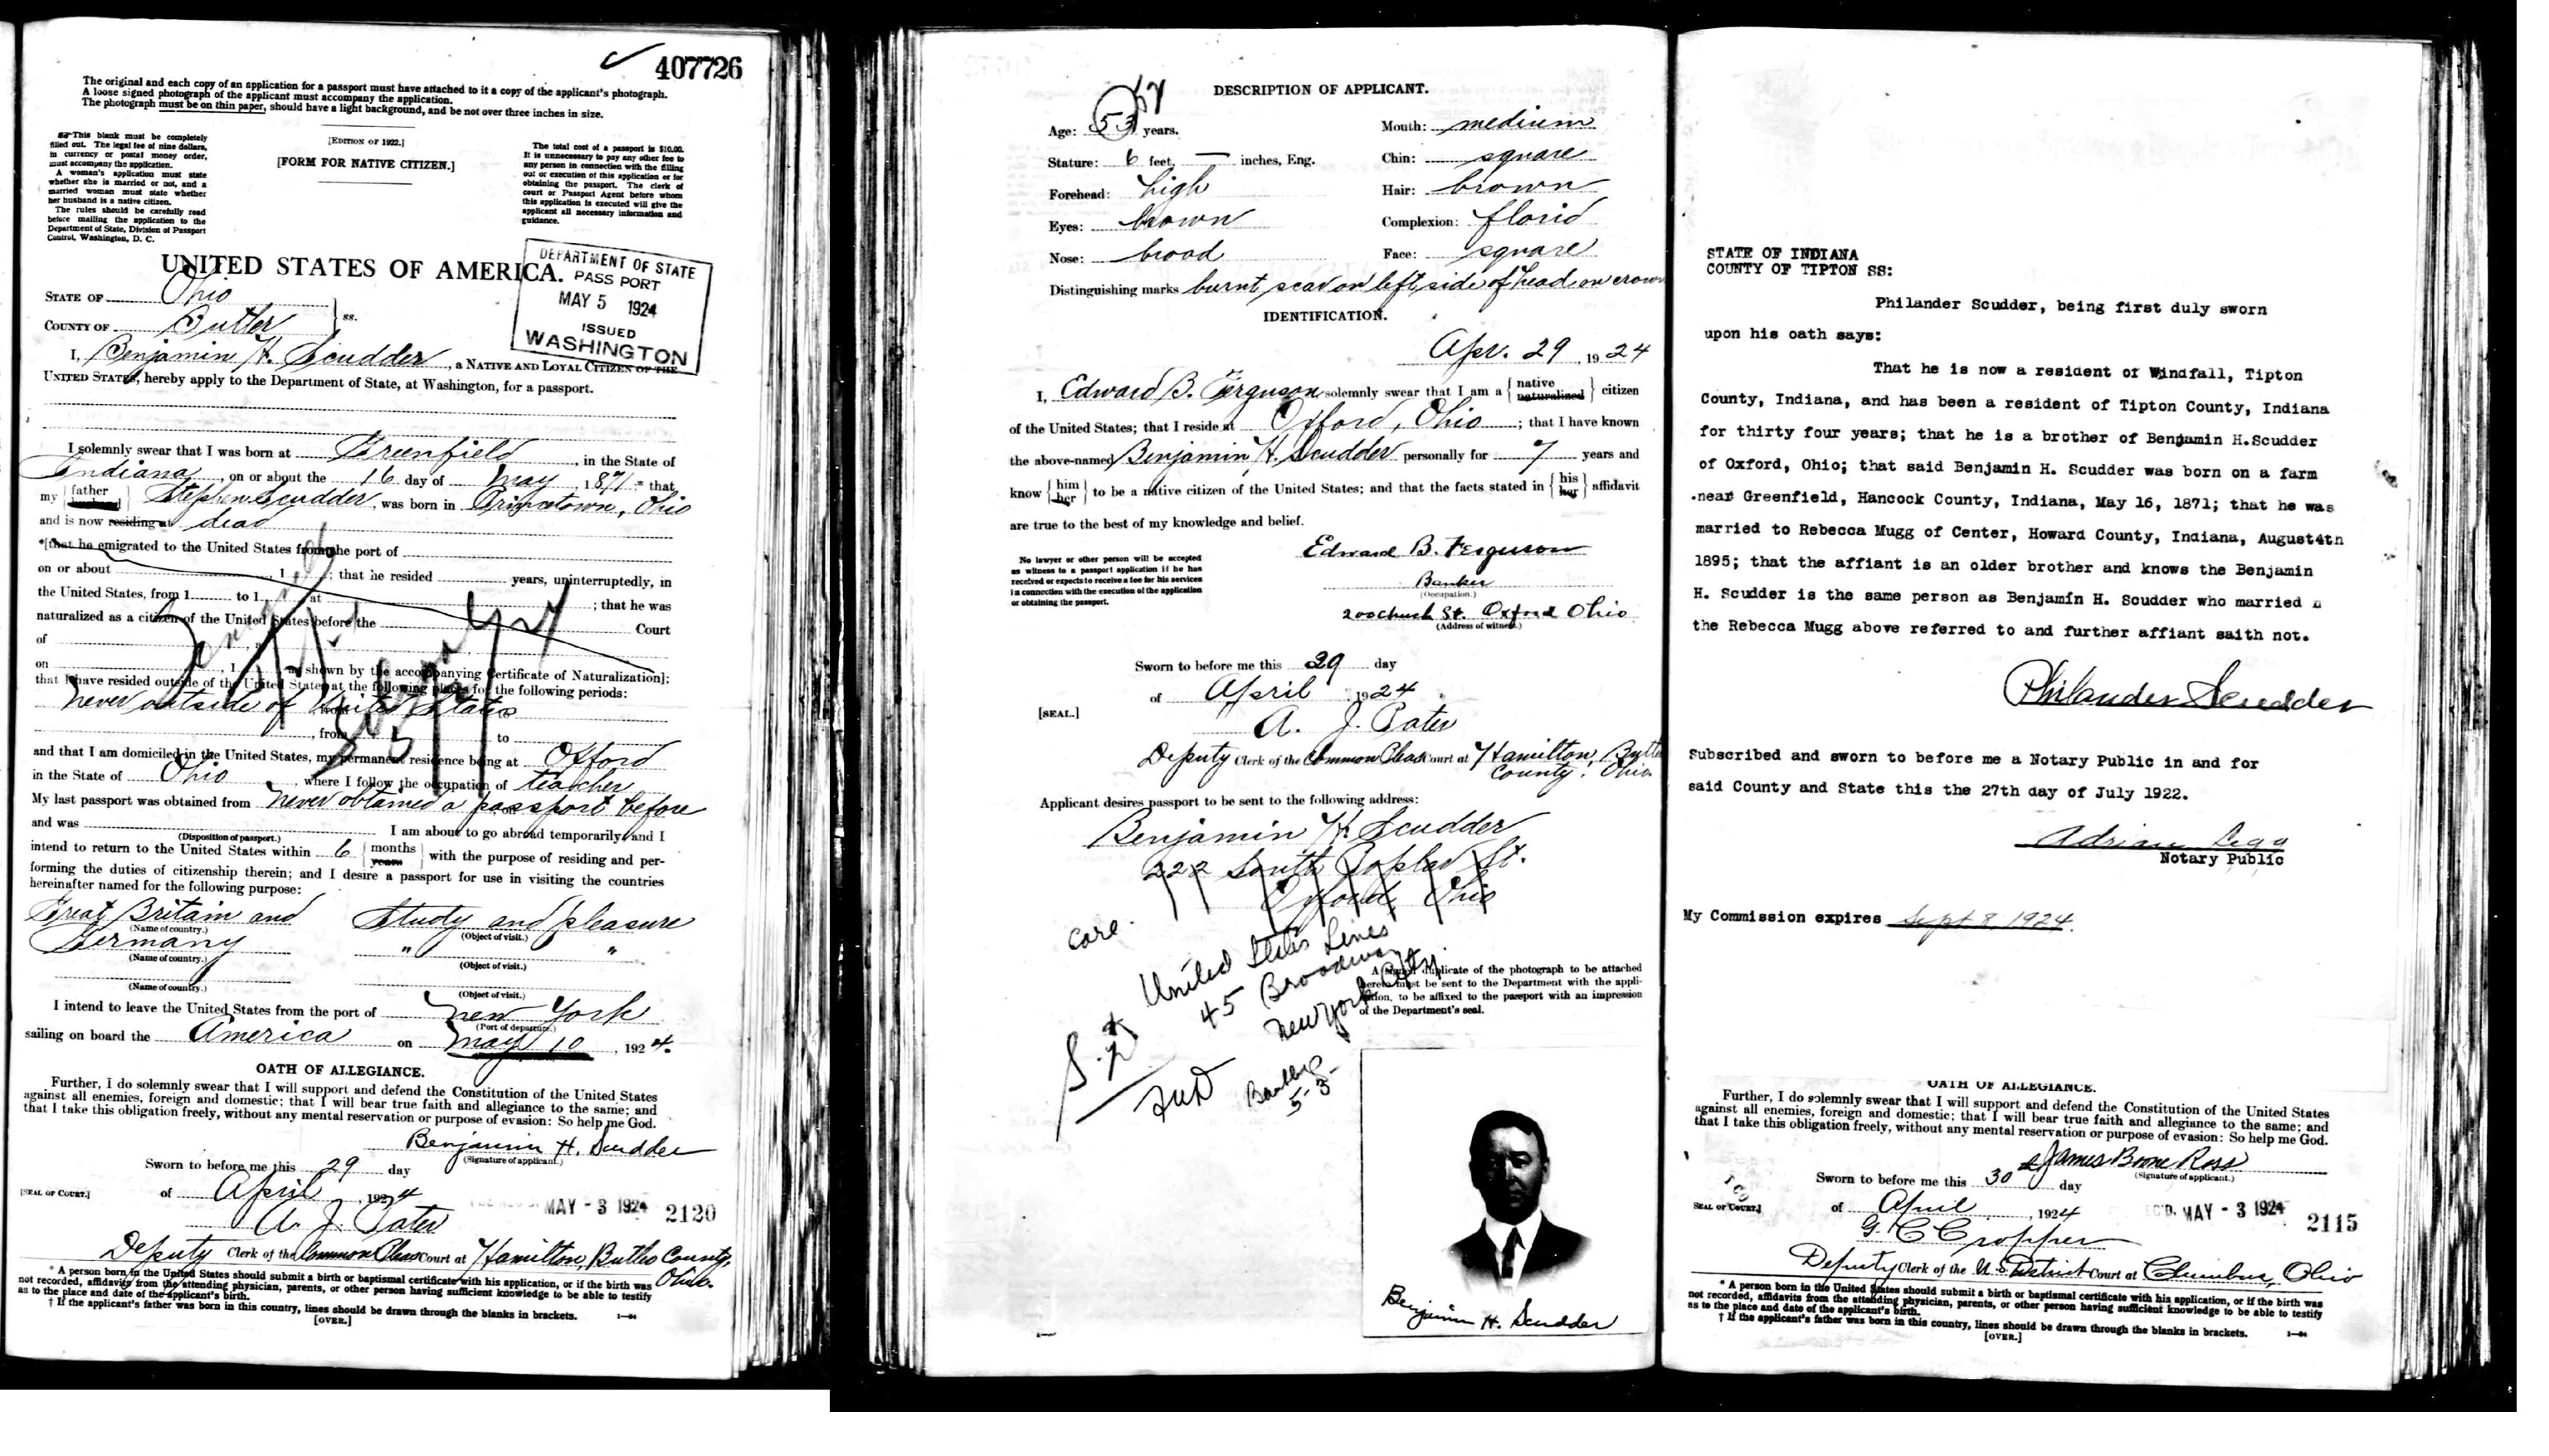 407726
The original and each copy of an application for a passport must have attached to it a copy of the applicant's photograph.
A loose signed photograph of the applicant must accompany the application.
The photograph must be on thin paper, should have a light background, and be not over three inches in size.
This blank must be completely
filled out. The legal fee of nine dollars,
in currency or postal money order,
must accompany the application.
A woman's application must state
whether she is married or not, and a
married woman must state whether
her husband is a native citizen.
The rules should be carefully read
before mailing the application to the
Department of State, Division of Passport
Control, Washington, D. C.
[EDITION OF 1922.]
[FORM FOR NATIVE CITIZEN.]
The total cost of a passport is $10.00.
It is unnecessary to pay any other fee to
any person in connection with the filling
out or execution of this application or for
obtaining the passport. The clerk of
court or Passport Agent before whom
this application is executed will give the
applicant all necessary information and
guidance.
UNITED STATES OF AMERICA.
DEPARTMENT OF STATE
PASSPORT
MAY 5 1924
ISSUED
WASHINGTON
STATE OF Ohio
COUNTY OF Butler ss.
I, Benjamin H. Scudder, a NATIVE AND LOYAL CITIZEN OF THE
UNITED STATES, hereby apply to the Department of State, at Washington, for a passport.
I solemnly swear that I was born at Greenfield, in the State of
Indiana, on or about the 16 day of May, 1871;* that
my {father husband} Stephen Scudder, was born in Princetown, Ohio
and is now residing at dead
*[that he emigrated to the United States from the port of
on or about 1 ; that he resided years, uninterruptedly, in
the United States, from 1 to 1 at ; that he was
naturalized as a citizen of the United States before the Court
of
on , 1 , as shown by the accompanying Certificate of Naturalization];
that I have resided outside of the United States at the following places for the following periods:
never outside of United States
, from to
and that I am domiciled in the United States, my permanent residence being at Oxford
in the State of Ohio, where I follow the occupation of teacher
My last passport was obtained from never obtained a passport before
and was I am about to go abroad temporarily and I
(Disposition of passport.)
intend to return to the United States within 6 {months years} with the purpose of residing and per-
forming the duties of citizenship therein; and I desire a passport for use in visiting the countries
hereinafter named for the following purpose:
Great Britain and Study and pleasure
(Name of country.) (Object of visit.)
Germany " "
(Name of country.) (Object of visit.)
(Name of country.) (Object of visit.)
I intend to leave the United States from the port of New York
(Port of departure.)
sailing on board the America on May 10, 1924.
OATH OF ALLEGIANCE.
Further, I do solemnly swear that I will support and defend the Constitution of the United States
against all enemies, foreign and domestic; that I will bear true faith and allegiance to the same; and
that I take this obligation freely, without any mental reservation or purpose of evasion: So help me God.
Benjamin H. Scudder
(Signature of applicant.)
Sworn to before me this 29 day
[SEAL OF COURT.] of April, 1924
MAY - 3 1924 2120
A. J. Pater
Deputy Clerk of the Common Pleas Court at Hamilton, Butler County, Ohio.
* A person born in the United States should submit a birth or baptismal certificate with his application, or if the birth was
not recorded, affidavits from the attending physician, parents, or other person having sufficient knowledge to be able to testify
as to the place and date of the applicant's birth.
† If the applicant's father was born in this country, lines should be drawn through the blanks in brackets.
[OVER.]
DESCRIPTION OF APPLICANT.
Age: 53 years. Mouth: medium
Stature: 6 feet, — inches, Eng. Chin: square
Forehead: high Hair: brown
Eyes: brown Complexion: florid
Nose: broad Face: square
Distinguishing marks burnt scar on left side of head on crown
IDENTIFICATION.
Apr. 29, 1924
I, Edward B. Ferguson, solemnly swear that I am a {native naturalized} citizen
of the United States; that I reside at Oxford, Ohio; that I have known
the above-named Benjamin H. Scudder personally for 7 years and
know {him her} to be a native citizen of the United States; and that the facts stated in {his her} affidavit
are true to the best of my knowledge and belief.
No lawyer or other person will be accepted
as witness to a passport application if he has
received or expects to receive a fee for his services
in connection with the execution of the application
or obtaining the passport.
Edward B. Ferguson
Banker
(Occupation.)
200 Church St. Oxford Ohio
(Address of witness.)
Sworn to before me this 29 day
of April 1924
[SEAL.]
A. J. Pater
Deputy Clerk of the Common Pleas Court at Hamilton, Butler
County, Ohio
Applicant desires passport to be sent to the following address:
Benjamin H. Scudder
222 South Poplar St.
Oxford, Ohio
care.
United States Lines
45 Broadway
New York City
A signed duplicate of the photograph to be attached
hereto must be sent to the Department with the appli-
cation, to be affixed to the passport with an impression
of the Department's seal.
5-3
Benjamin H. Scudder
STATE OF INDIANA
COUNTY OF TIPTON SS:
Philander Scudder, being first duly sworn
upon his oath says:
That he is now a resident of Windfall, Tipton
County, Indiana, and has been a resident of Tipton County, Indiana
for thirty four years; that he is a brother of Benjamin H.Scudder
of Oxford, Ohio; that said Benjamin H. Scudder was born on a farm
near Greenfield, Hancock County, Indiana, May 16, 1871; that he was
married to Rebecca Mugg of Center, Howard County, Indiana, August4th
1895; that the affiant is an older brother and knows the Benjamin
H. Scudder is the same person as Benjamin H. Scudder who married
the Rebecca Mugg above referred to and further affiant saith not.
Philander Scudder
Subscribed and sworn to before me a Notary Public in and for
said County and State this the 27th day of July 1922.
Adrian Legg
Notary Public
My Commission expires Sept 8, 1924.
OATH OF ALLEGIANCE.
Further, I do solemnly swear that I will support and defend the Constitution of the United States
against all enemies, foreign and domestic; that I will bear true faith and allegiance to the same; and
that I take this obligation freely, without any mental reservation or purpose of evasion: So help me God.
James Boone Ross
(Signature of applicant.)
Sworn to before me this 30 day
[SEAL OF COURT.] of April, 1924
REC'D. MAY - 3 1924 2115
G C Cropper
Deputy Clerk of the U.S. District Court at Columbus, Ohio
* A person born in the United States should submit a birth or baptismal certificate with his application, or if the birth was
not recorded, affidavits from the attending physician, parents, or other person having sufficient knowledge to be able to testify
as to the place and date of the applicant's birth.
† If the applicant's father was born in this country, lines should be drawn through the blanks in brackets.
[OVER.]